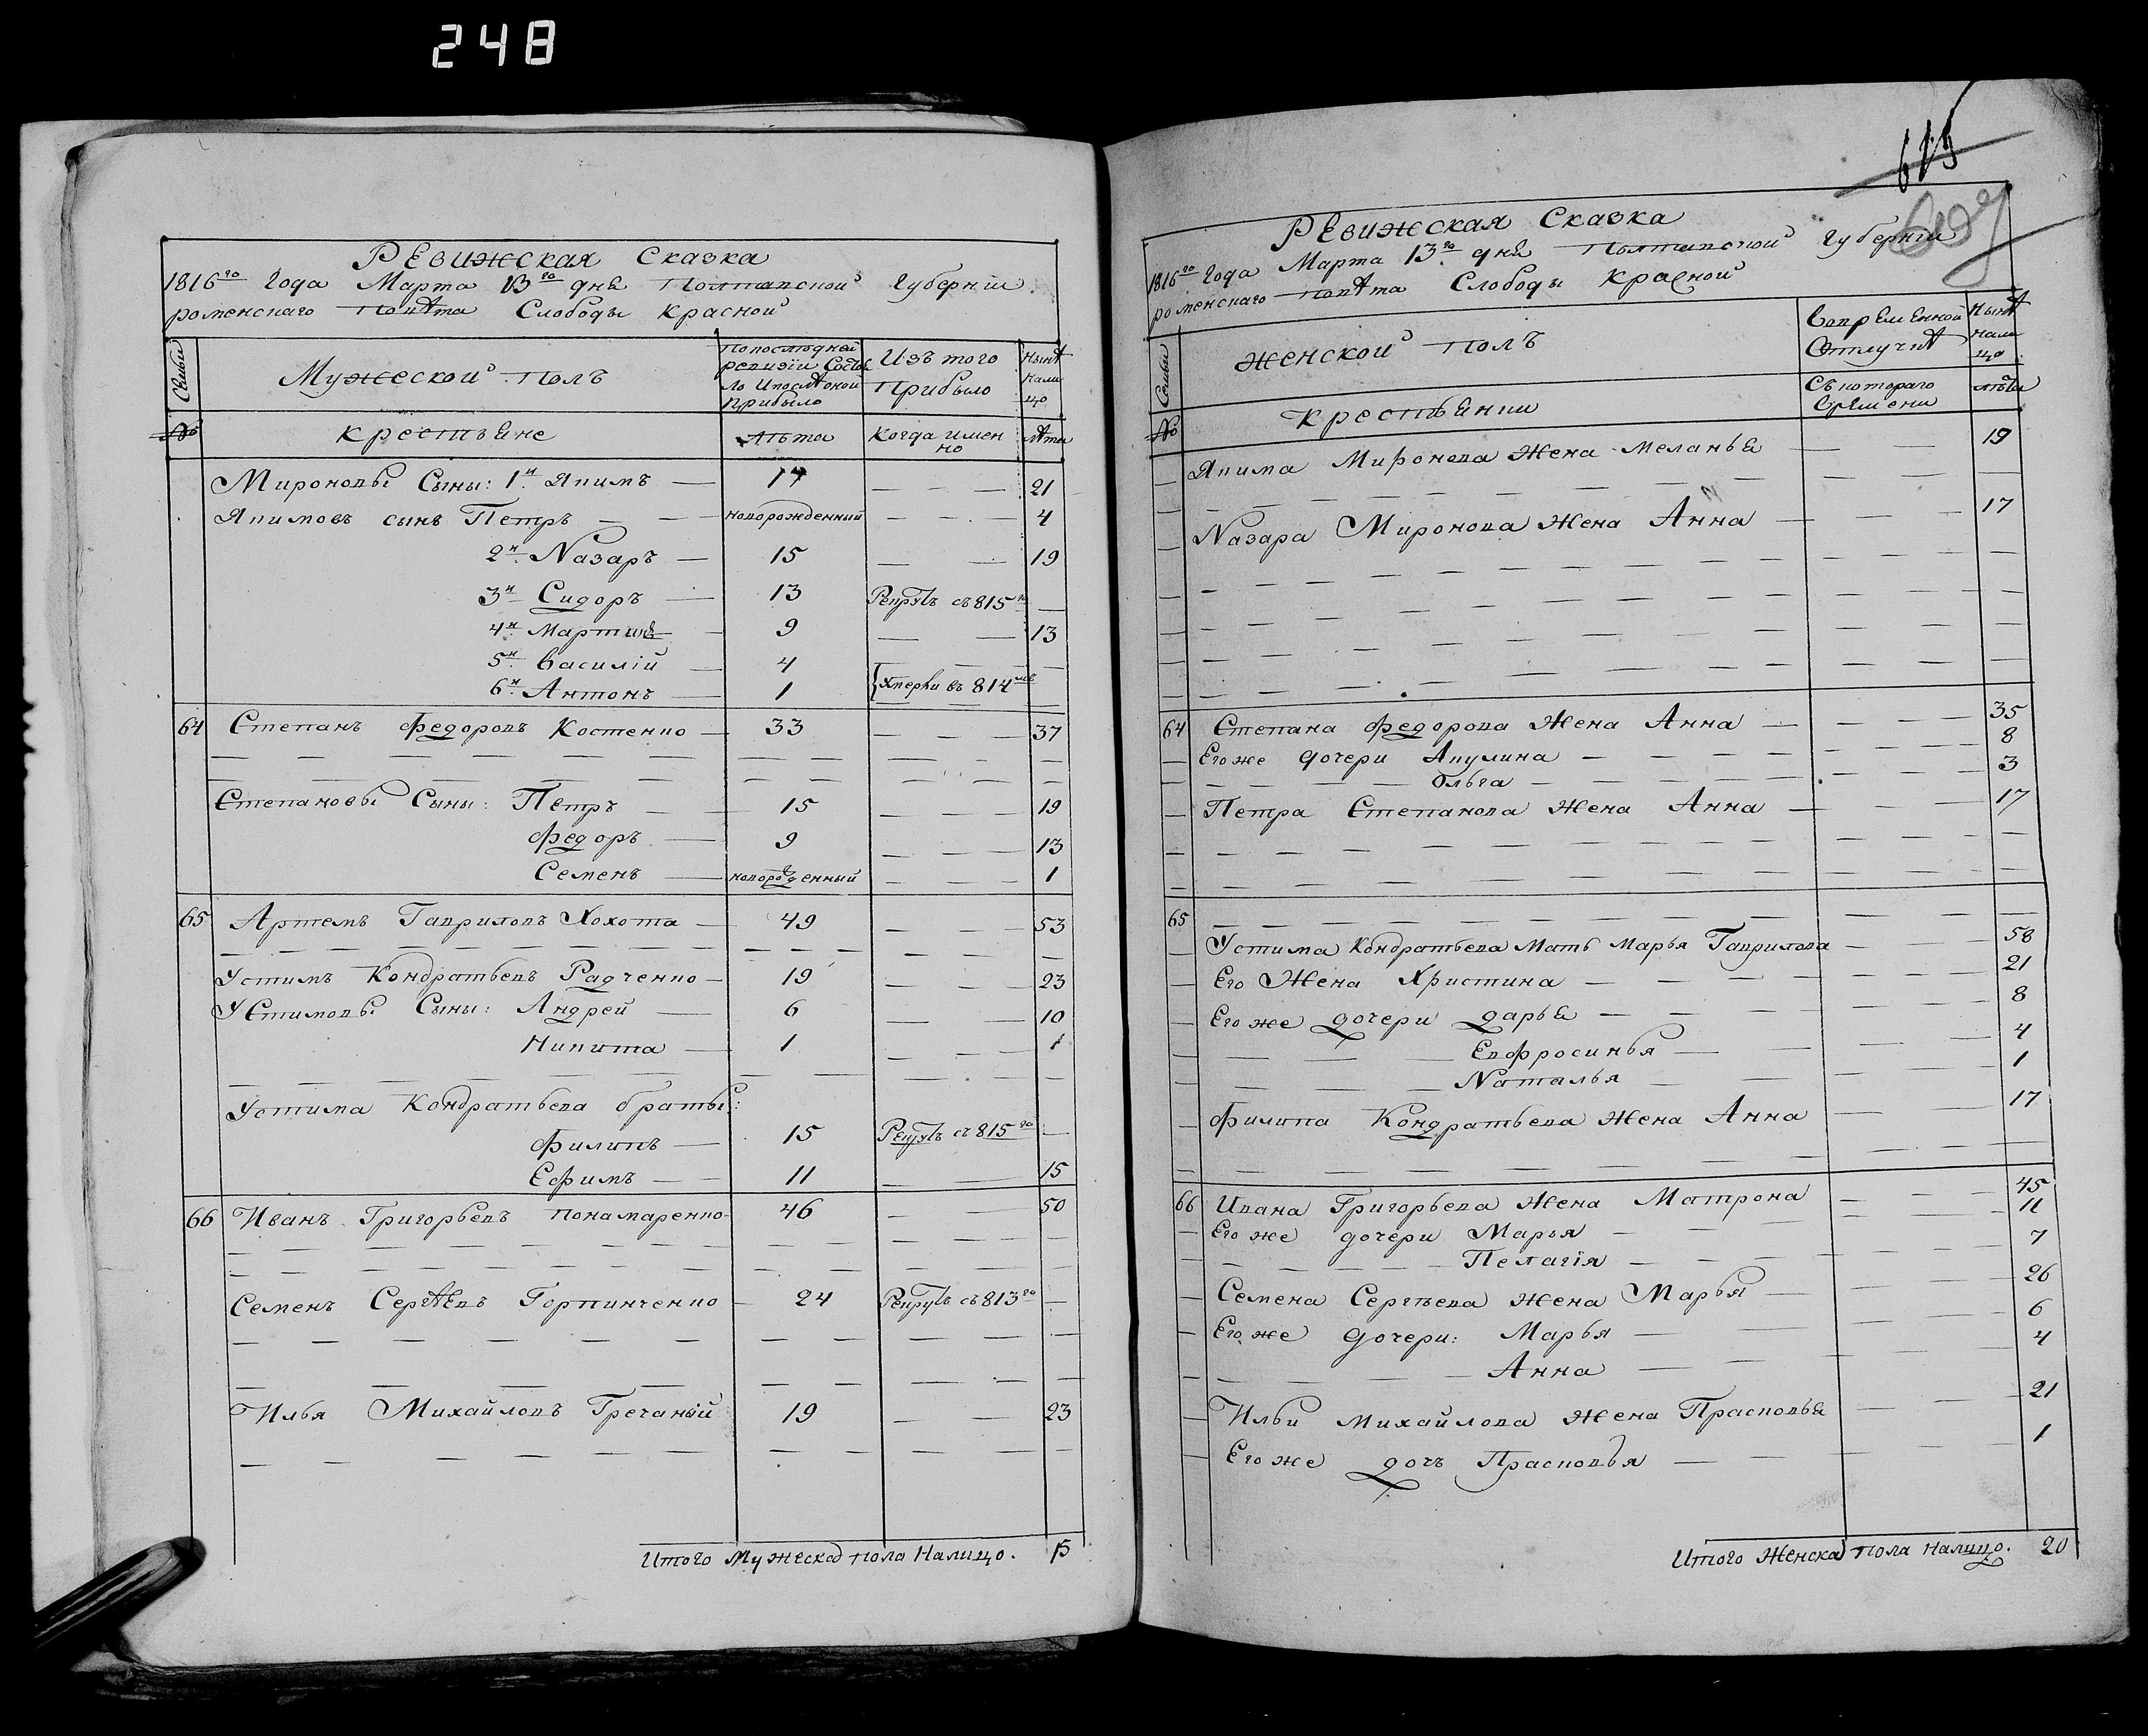 248
Ревижская Сказка
1816го Года Марта 13го дня Полтавской Губернии
роменскаго Повѣта Слободы Красной
Семьи
Мужеской полъ
Попослѣдней ревизіи Состояло Ипослѣ оной Прибыло
Изъ того Прибыло
Нынѣ нали цо
№
крестьяне
лѣта
когда имен но
лѣта
Мироновы Сыны: 1й Якимъ — 17 — — — 21
Якимовъ сынъ Петръ — — новорожденный — — — 4
2й Назаръ — 15 — — 19
3й Сидоръ — 13 Рекрутъ съ 815го —
4й Мартинъ — 9 — — 13
5й Василій — 4 — — — —
6й Антонъ — 1 {Умерли въ 814мъ —
64 Степанъ Федоровъ Костенко — 33 — — — 37
Степановы Сыны: Петръ — — 15 — — — 19
Федоръ — 9 — — — 13
Семенъ — новорожденный — — — 1
65 Артемъ Гавриловъ Хохота — 49 — — 53
Устимъ Кондратьевъ Радченко — 19 — — — 23
Устимовы Сыны: Андрей — 6 — — 10
Никита — 1 — — — 1
Устима Кондратьева братья:
Филипъ — 15 Рекрутъ съ 815го —
Ефимъ — — 11 — — 15
66 Иванъ Григорьевъ Понамаренко — 46 — — 50
Семенъ Сергѣевъ Горпинченко — 24 Рекрутъ съ 813го —
Илья Михайловъ Гречаный 19 — — 23
Итого Мужеска пола Налицо. 15
615
Ревижская Сказка
1816го Года Марта 13го дня Полтавской Губернии
роменскаго Повѣта Слободы Красной
Семьи
Женской полъ
Вовременной Отлучкѣ
Нынѣ нали цо
№
крестьянки
Съкотораго Времени
лѣта
Якима Миронова Жена Меланья — — 19
Назара Миронова Жена Анна — — — 17
64 Степана Федорова Жена Анна — — — — 35
Егоже дочери Акулина — — — — — 8
Ольга — — — — — 3
Петра Степанова Жена Анна — — — 17
65 — — — — — — — — — —
Устима Кондратьева Мать Марья Гаврилова — — 58
Его Жена Христина — — — — — — 21
Егоже дочери Дарья — — — — — 8
— — — Евфросинья — — — 4
— — — Наталья — — — — 1
Филипа Кондратьева Жена Анна — — 17
66 Ивана Григорьева Жена Матрона — — — 45
Его же дочери Марья — — — — — 11
— — — — Пелагія — — — — — 7
Семена Сергѣева Жена Марья — — — — 26
Его же дочери: Марья — — — — 6
Анна — — — — — 4
Ильи Михайлова Жена Прасковья — — — 21
Егоже дочь Прасковья — — — — — 1
Итого Женска пола налицо. 20